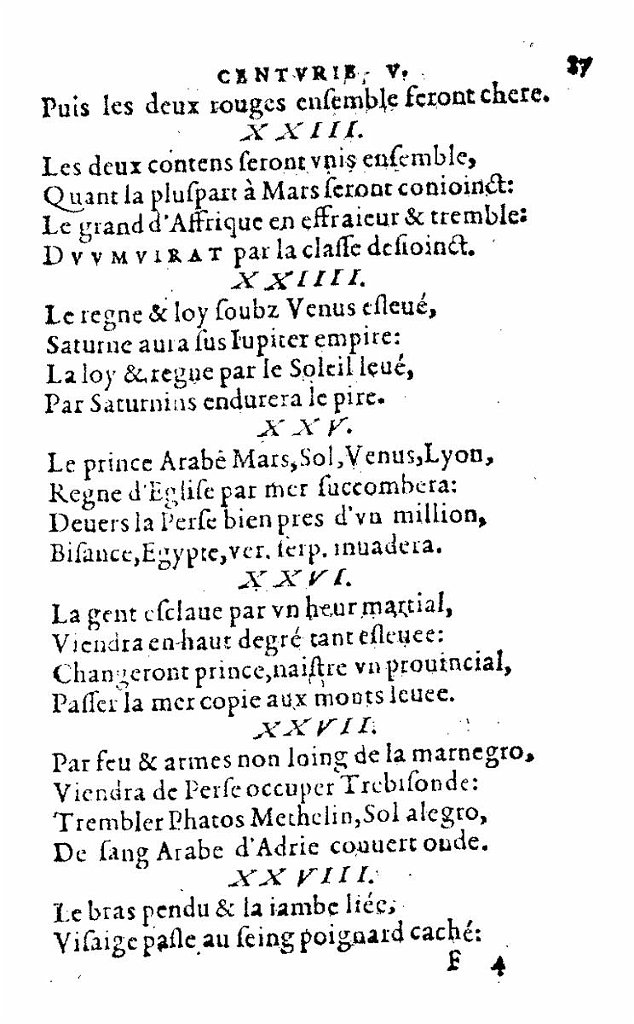 CENTVRIE, V. 87
Puis les deux rouges enſemble feront chere.
XXIII.
Les deux contens ſeront vnis enſemble,
Quant la pluſpart à Mars ſeront conioinct:
Le grand d'Affrique en effraieur & tremble:
DVVMVIRAT par la claſſe deſioinct.
XXIIII.
Le regne & loy ſoubz Venus eſleué,
Saturne aura ſus Iupiter empire:
La loy & regne par le Soleil leué,
Par Saturnins endurera le pire.
XXV.
Le prince Arabe Mars, Sol, Venus, Lyon,
Regne d'Egliſe par mer ſuccombera:
Deuers la Perſe bien pres d'vn million,
Biſance, Egypte, ver. ſerp. inuadera.
XXVI.
La gent eſclaue par vn heur martial,
Viendra en haut degré tant eſleuee:
Changeront prince, naiſtre vn prouincial,
Paſſer la mer copie aux monts leuee.
XXVII.
Par feu & armes non loing de la marnegro,
Viendra de Perſe occuper Trebiſonde:
Trembler Phatos Methelin, Sol alegro,
De ſang Arabe d'Adrie couuert onde.
XXVIII.
Le bras pendu & la iambe liée,
Viſaige paſle au ſeing poignard caché:
F 4